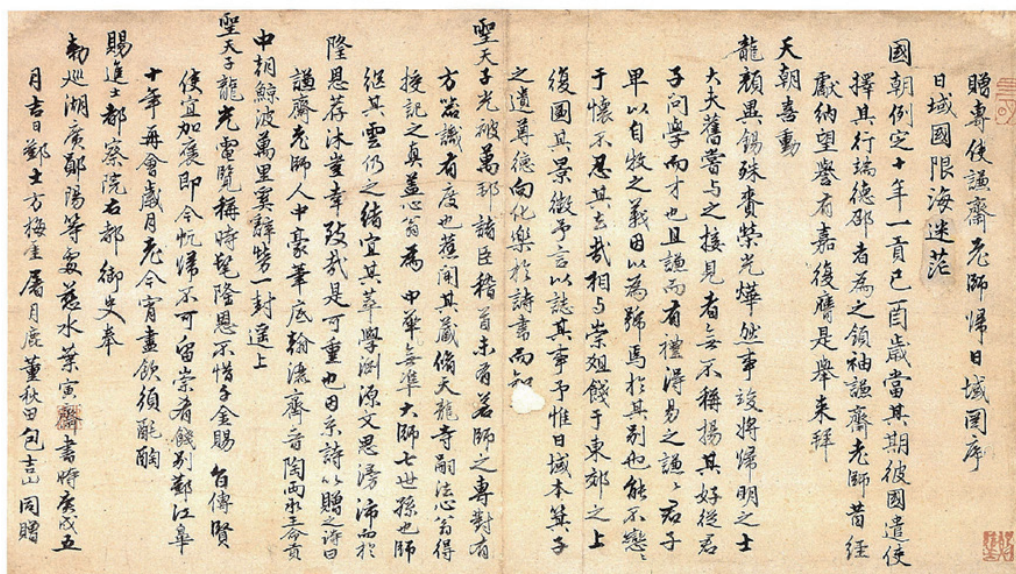 贈專使謙齋老師歸日域圖序
日域國限海迷茫
國朝例定十年一貢己酉歲當其期彼國遣使
擇其行瑞德邵者為之領袖謙齋老師昔經
獻納望譽有嘉復膺是舉来拜
天朝喜動
龍顏異錫殊賚榮光燁然事竣將歸明之士
大夫舊嘗與之接見者無不稱揚其好從君
子問學而才也且謙而有禮得易之謙謙君子
卑以自牧之義因以為號焉於其別也能不戀戀
于懷不忍其去哉相与崇俎餞于東郊之上
復圖其景徵予言以誌其事予惟日域本箕子
之遺尊德向化樂於詩書而知
聖天子光被萬邦諸臣稽首未有若師之專對有
方器識有度也蕉聞其蔵脩天龍寺嗣法心翁得
授記之真蓋心翁為中華無準大師七世孫也師
继其雲仍之緒宜其萃學淵源文思滂沛而於
隆恩荐沐豈幸致哉是可重也因系詩以贈之詩曰
謙齋老師人中豪筆底翰流齊晋陶両承王命貢
中朝鯨波萬里奚辭勞一封遥上
聖天子龍光電覽稱時髦隆恩不惜千金賜
使宜加褒即今帆歸不可留崇肴餞別鄞江皐
十年再會歲月老今宵畫飲須酕醄
賜進士都察院右都御史奉
勅巡湖廣鄖陽等處慈水葉寅齋書時庚戌五
月吉日鄞士方梅厓屠月鹿董秋田包吉山同贈